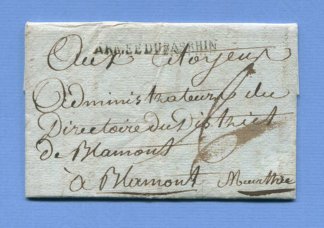 ARMÉE DU BAS RHIN
Aux Citoyens
Administrateurs du
Directoire du District
de Blamont
à Blamont Meurthe